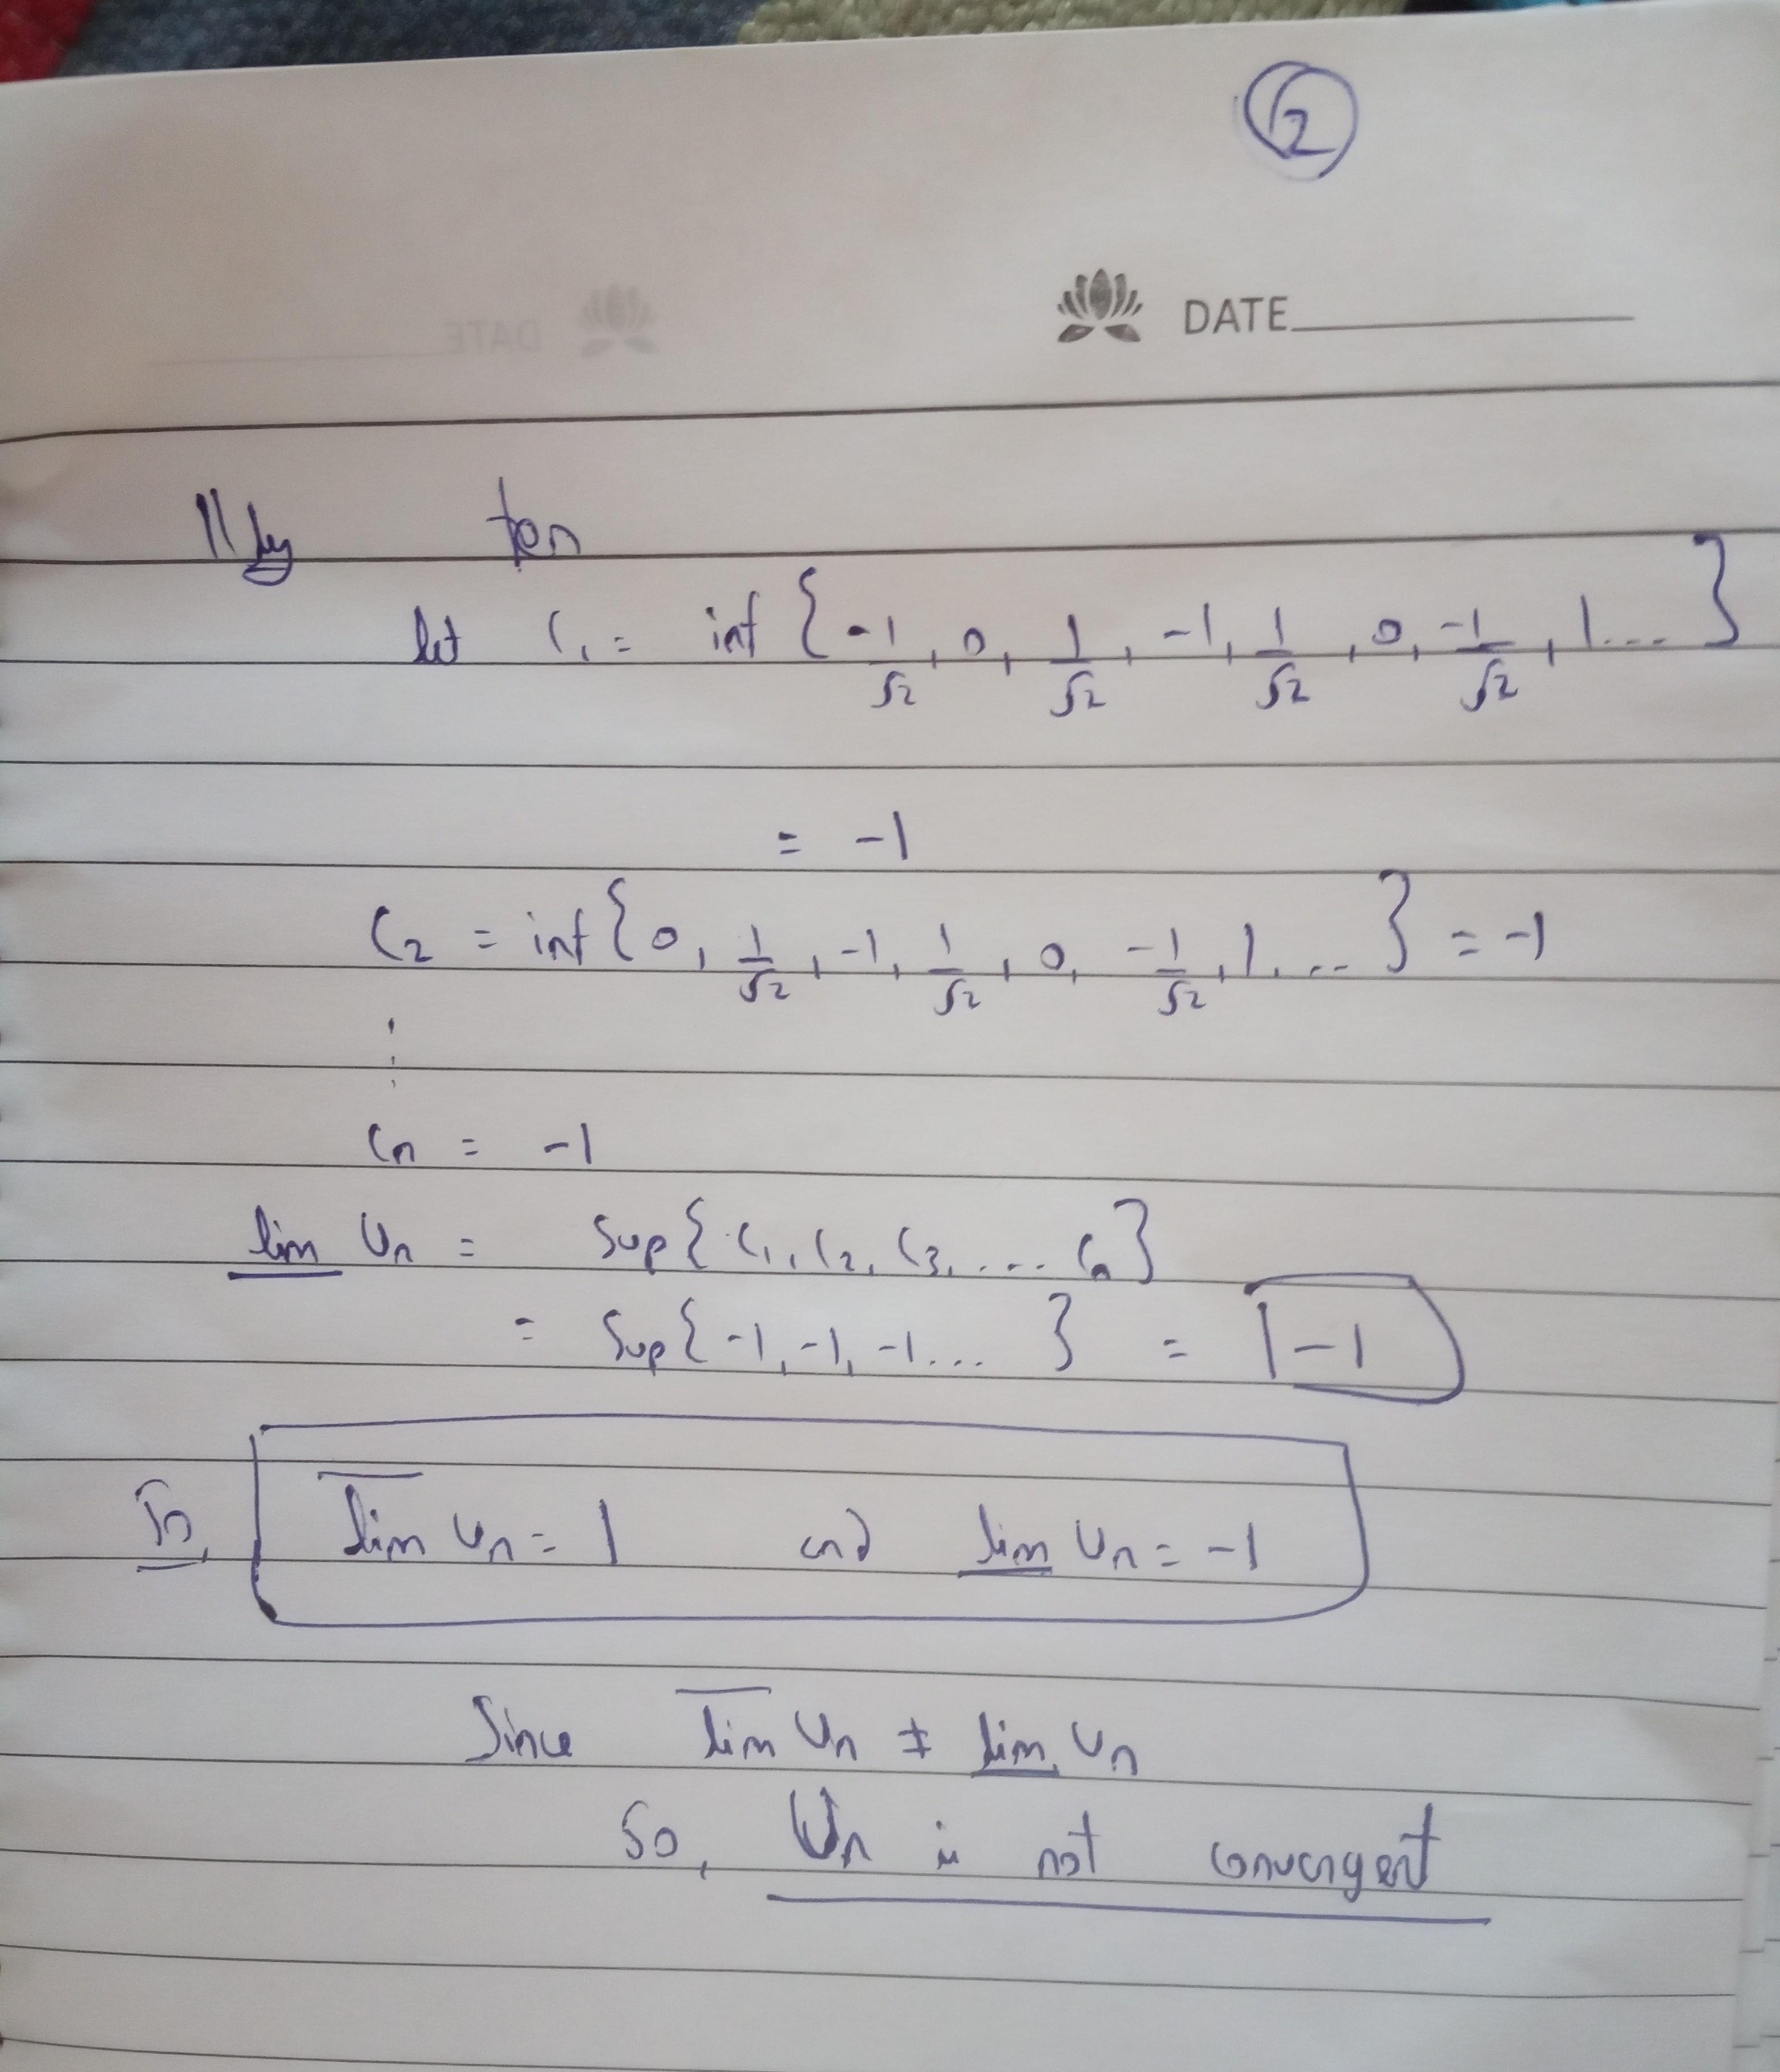 2
DATE
||ly for
let C₁ = inf { -1/√2, 0, 1/√2, -1, 1/√2, 0, -1/√2, 1.... }
= -1
C₂ = inf { 0, 1/√2, -1, 1/√2, 0, -1/√2, 1, ... } = -1
⋮
Cn = -1
l̲i̲m̲ Un = Sup{ C₁, C₂, C₃, .... Cn }
= Sup{ -1, -1, -1... } = -1
So, l̅i̅m̅ Un = 1 and l̲i̲m̲ Un = -1
Since l̅i̅m̅ Un ≠ l̲i̲m̲ Un
So, Un is not convergent